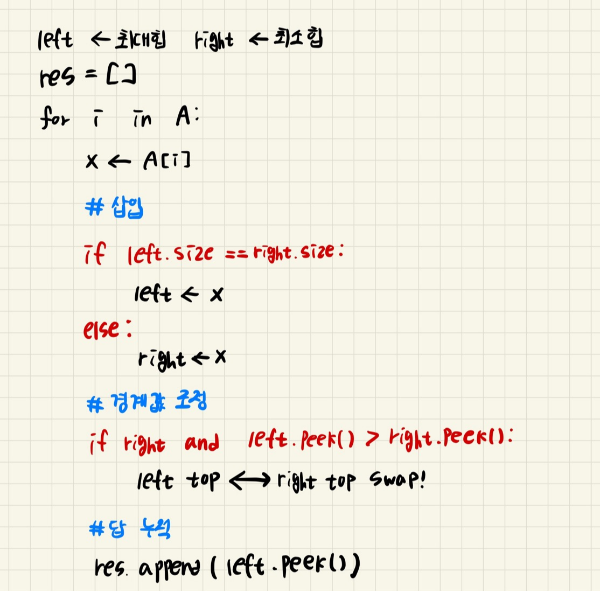 left ← 최대힙 right ← 최소힙
res = []
for i in A:
x ← A[i]
# 삽입
if left.size == right.size:
left ← x
else:
right ← x
# 경계값 조정
if right and left.peek() > right.peek():
left top ↔ right top swap!
#답 누적
res. append (left.peek())